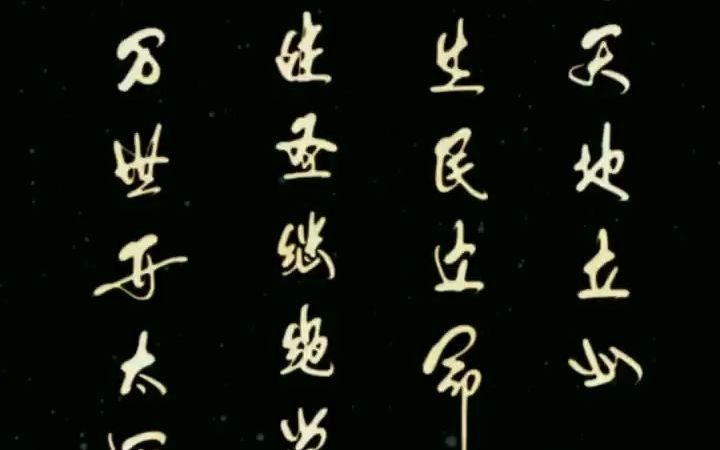 天地立心
生民立命
往圣继绝学
万世开太